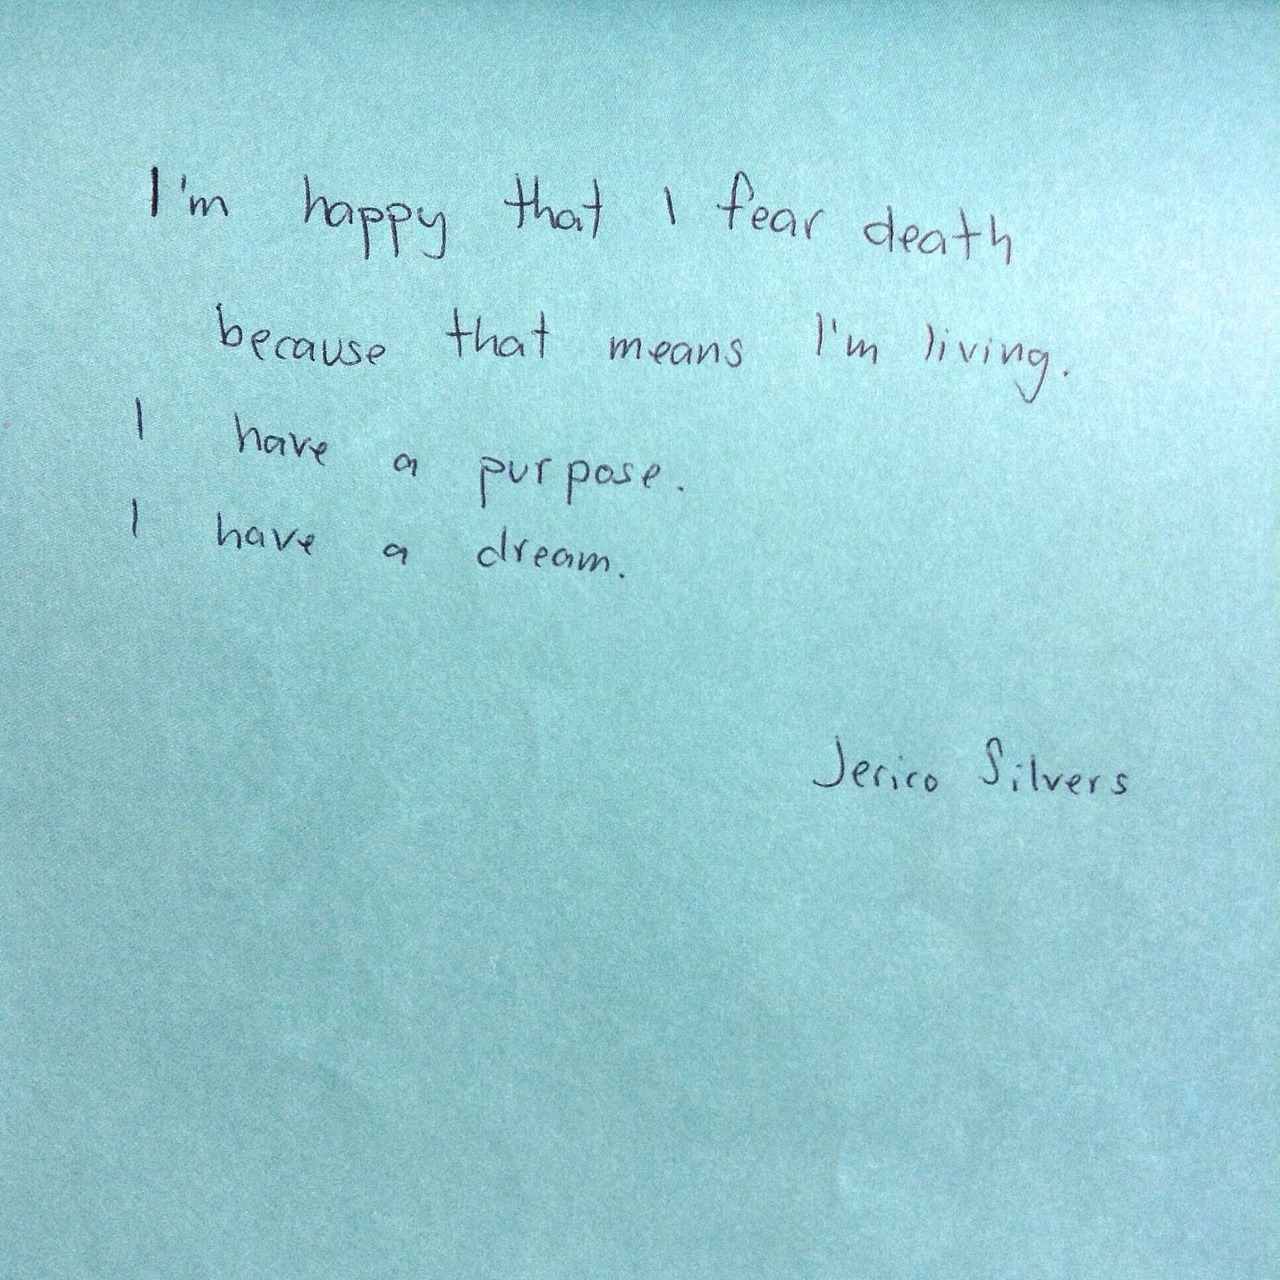 I'm happy that I fear death
because that means I'm living.
I have a purpose.
I have a dream.
Jerico Silvers